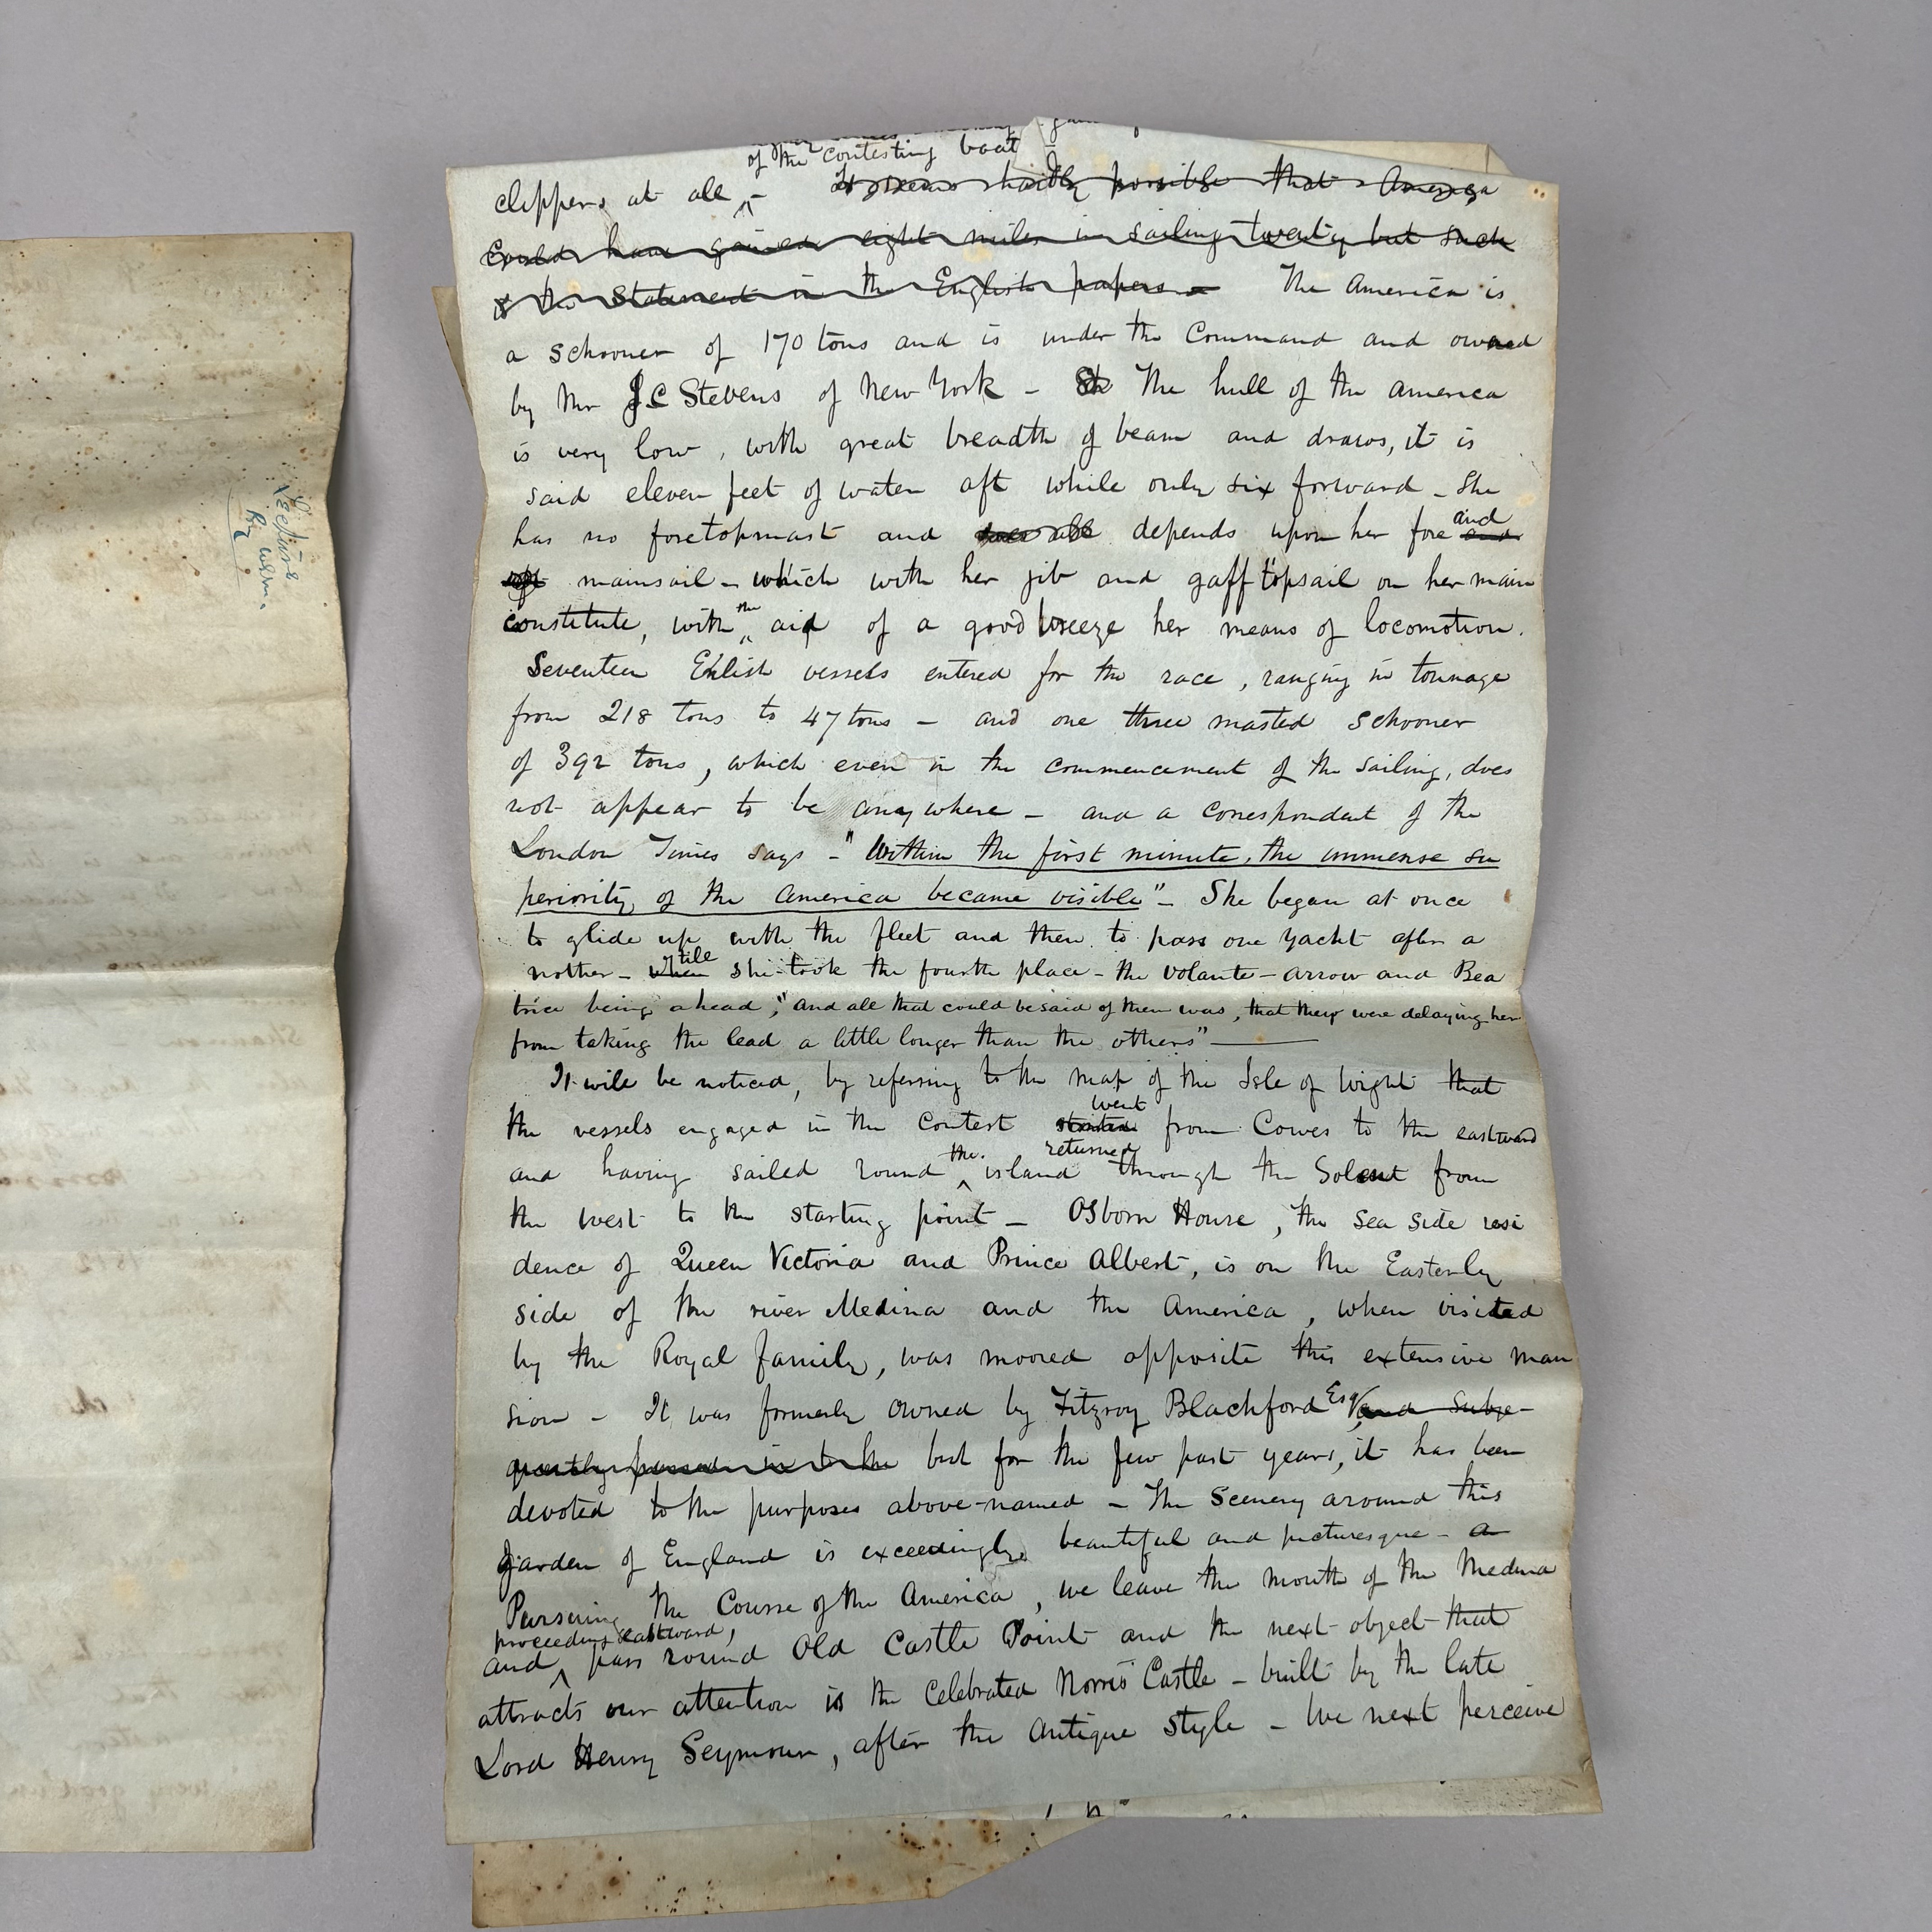 of the contesting boat
clippers at all - It seems hardly possible that America
could have gained eight miles in sailing twenty but such
is the Statement in the English papers - The America is
a schooner of 170 tons and is under the Command and owned
by Mr J.C Stevens of New York - The hull of the america
is very low, with great breadth of beam and draws, it is
said eleven feet of water aft while only six forward - She
has no foretopmast and depends upon her fore and
mainsail - which with her jib and gaff topsail on her main
constitute, with the aid of a good breeze her means of locomotion.
Seventeen Enlish vessels entered for the race, ranging in tonnage
from 218 tons to 47 tons - and one three masted schooner
of 392 tons, which even in the commencement of the sailing, does
not appear to be anywhere - and a correspondent of the
London Times says - "Within the first minute, the immense su
periority of the america became visible" - She began at once
to glide up with the fleet and then to pass one yacht after a
nother - till she took the fourth place - the Volante - arrow and Bea
trice being ahead, "and all that could be said of them was, that they were delaying her
from taking the lead a little longer than the others" -
It will be noticed, by referring to the map of the Isle of Wight that
the vessels engaged in the Contest went from Cowes to the eastward
and having sailed round the island returned through the Solent from
the west to the starting point - Osborn House, the sea side resi
dence of Queen Victoria and Prince Albert, is on the Easterly
side of the river Medina and the America, when visited
by the Royal family, was moored opposite this extensive man
sion - It was formerly owned by Fitzroy Blachford Esq, and subse-
quently passed in to the but for the few past years, it has been
devoted to the purposes above-named - The Scenery around this
garden of England is exceedingly beautiful and picturesque - a
Pursuing the Course of the America, we leave the mouth of the Medina
and proceeding eastward, pass round Old Castle Point and the next object that
attracts our attention is the celebrated Norris Castle - built by the late
Lord Henry Seymour, after the antique style - We next perceive
Lecture